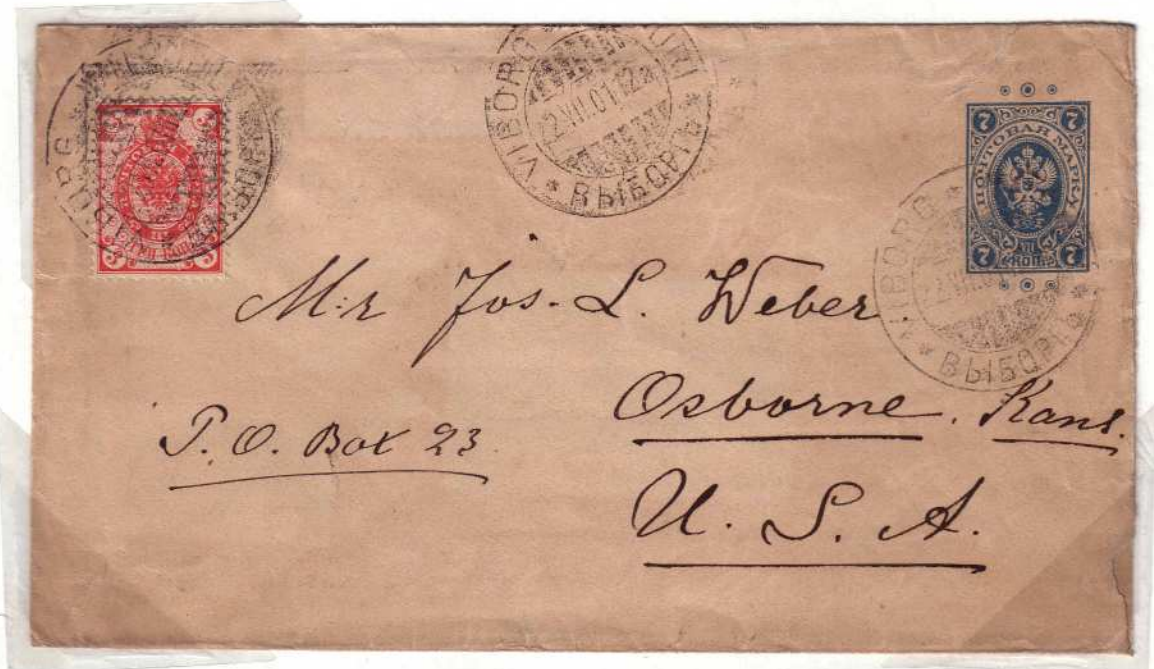 VIBORG
22.VII.01.12
ВЫБОРГЪ
7 7
ПОЧТОВАЯ МАРКА
VII
КОП.
7 7
3 3
3 3
VIBORG
ВЫБОРГЪ
M:r Jos. L. Weber
Osborne, Kans.
P. O. Box 23
U. S. A.